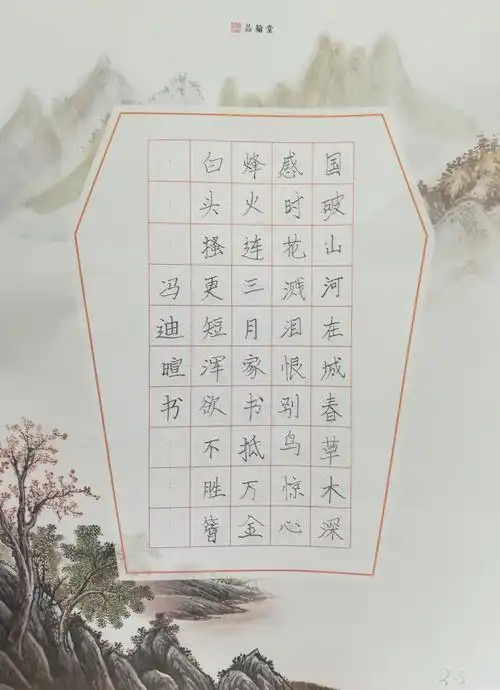 品翰堂
国破山河在城春草木深
感时花溅泪恨别鸟惊心
烽火连三月家书抵万金
白头搔更短浑欲不胜簪
冯迪暄书
3-5